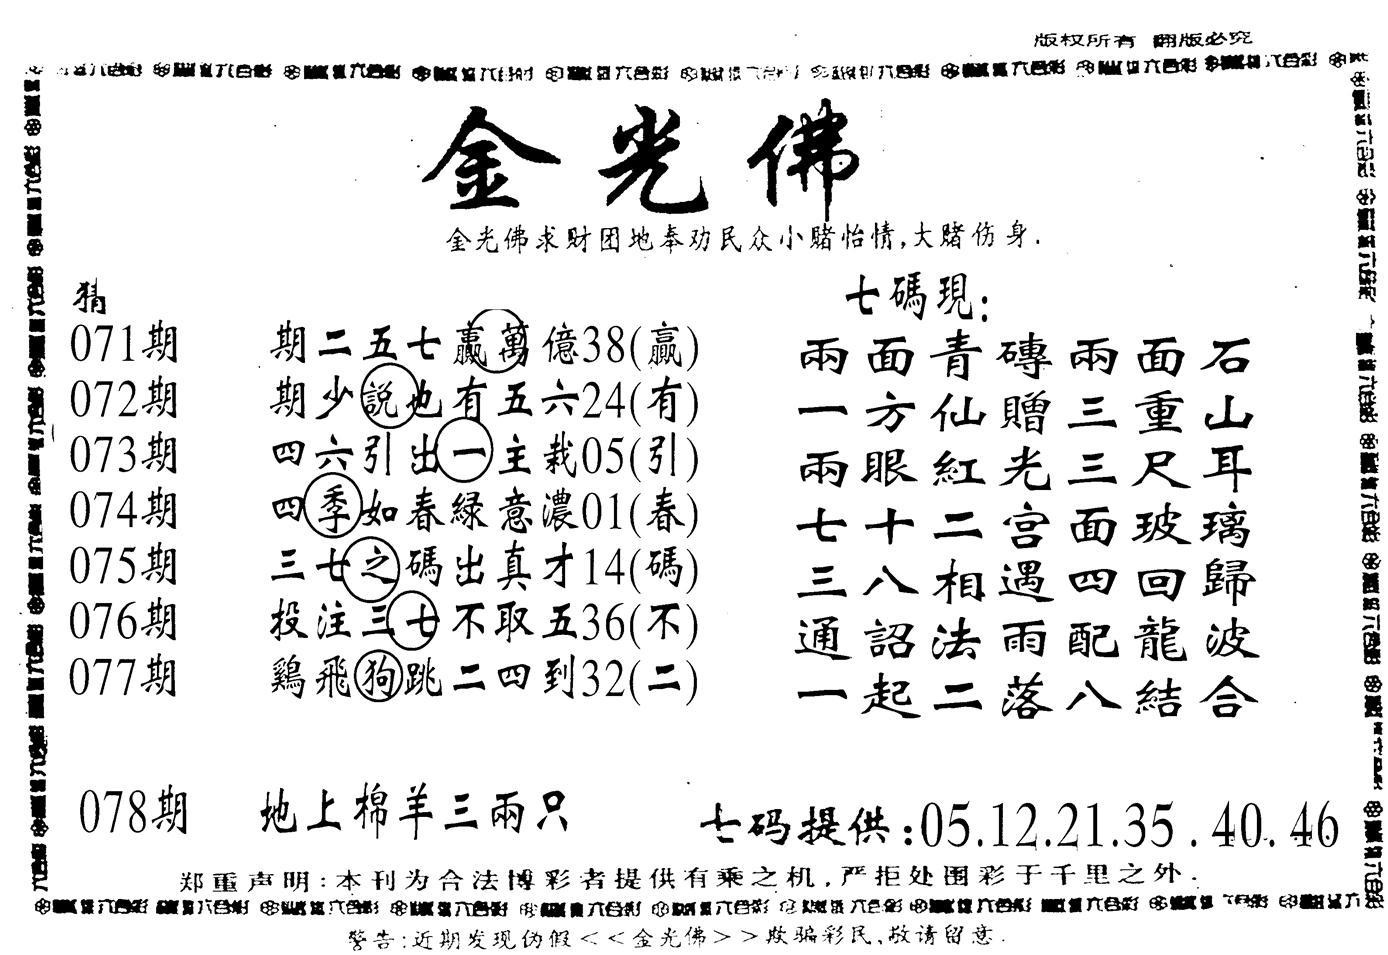 版权所有 翻版必究
金光佛
金光佛求财团地奉劝民众小赌怡情,大赌伤身.
猜
071期 期二五七贏萬億38(贏)
072期 期少説也有五六24(有)
073期 四六引出一主栽05(引)
074期 四季如春緑意濃01(春)
075期 三七之碼出真才14(碼)
076期 投注三七不取五36(不)
077期 鷄飛狗跳二四到32(二)
七碼現:
兩面青磚兩面石
一方仙贈三重山
兩眼紅光三尺耳
七十二宫面玻璃
三八相遇四回歸
通詔法雨配龍波
一起二落八結合
078期 地上棉羊三兩只
七码提供:05.12.21.35.40.46
郑重声明:本刊为合法博彩者提供有乘之机,严拒处围彩于千里之外.
警告:近期发现伪假<<金光佛>>欺骗彩民,敬请留意.